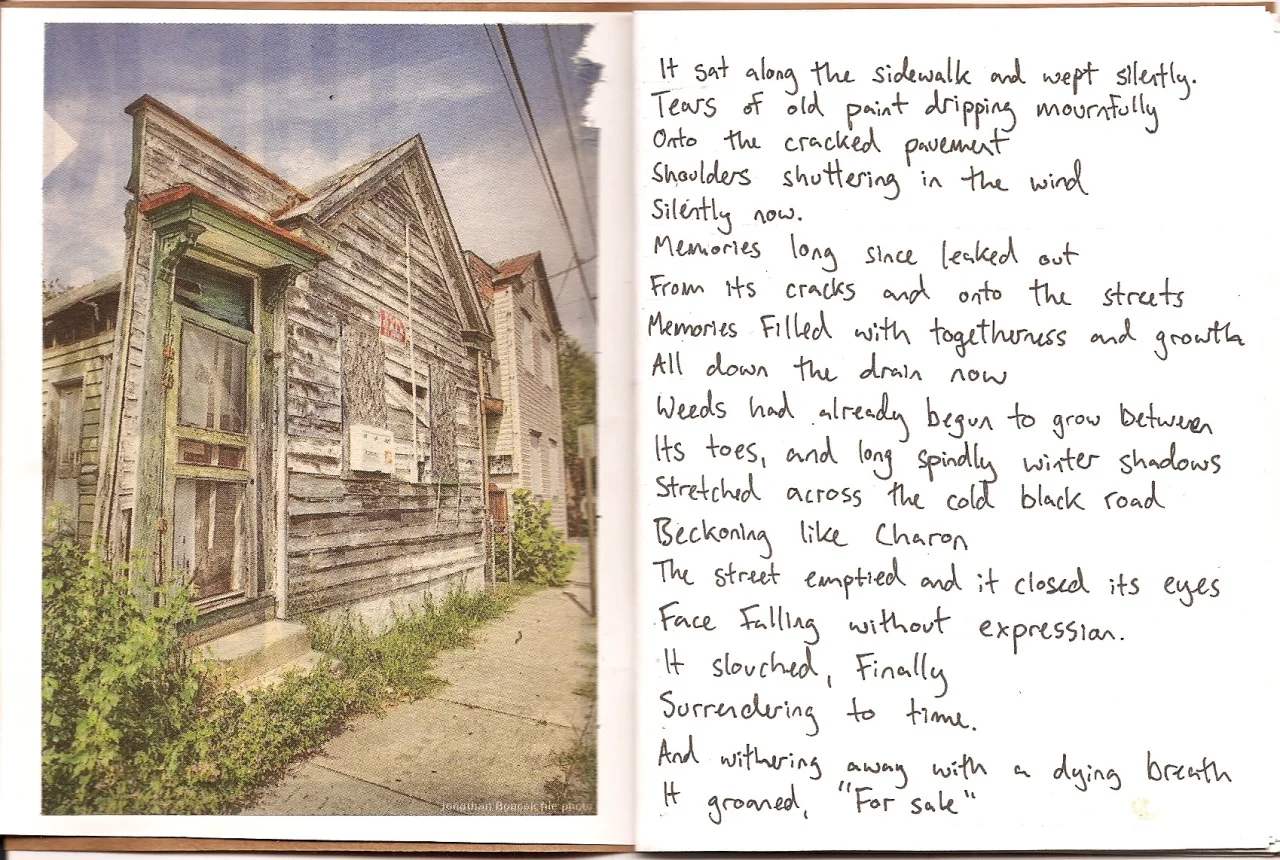 It sat along the sidewalk and wept silently.
Tears of old paint dripping mournfully
Onto the cracked pavement
Shoulders shuttering in the wind
Silently now.
Memories long since leaked out
From its cracks and onto the streets
Memories Filled with togetherness and growth
All down the drain now
Weeds had already begun to grow between
Its toes, and long spindly winter shadows
Stretched across the cold black road
Beckoning like Charon
The street emptied and it closed its eyes
Face Falling without expression.
It slouched, Finally
Surrendering to time.
And withering away with a dying breath
It groaned, "For sale"
Jonathan file photo